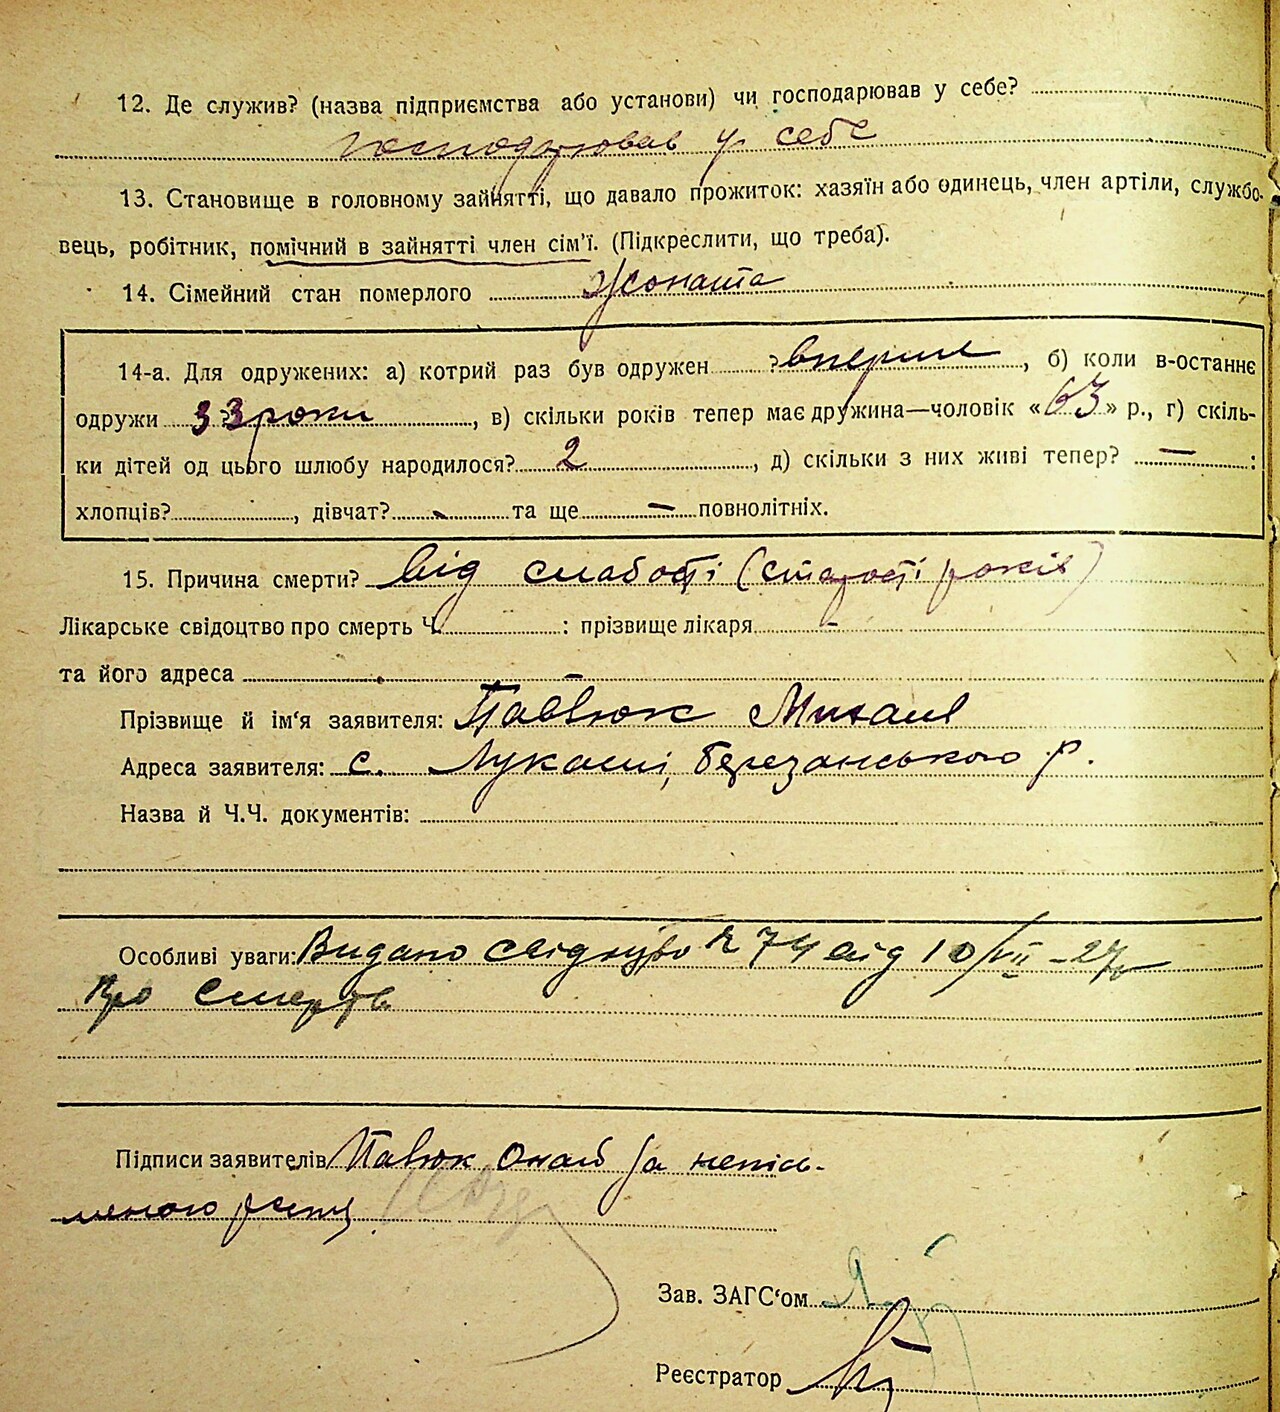 12. Де служив? (назва підприємства або установи) чи господарював у себе?
господарював у себе
13. Становище в головному зайнятті, що давало прожиток: хазяїн або одинець, член артіли, службо-
вець, робітник, помічний в зайнятті член сім'ї. (Підкреслити, що треба).
14. Сімейний стан померлого Жоната
14-а. Для одружених: а) котрий раз був одружен ? вперше, б) коли в-останнє
одружи 33 роки, в) скільки років тепер має дружина—чоловік «63» р., г) скіль-
ки дітей од цього шлюбу народилося? 2, д) скільки з них живі тепер? —:
хлопців?, дівчат? - та ще — повнолітніх.
15. Причина смерти? від слабості (старості років)
Лікарське свідоцтво про смерть Ч. : прізвище лікаря -
та його адреса
Прізвище й ім'я заявителя: Павлюк Михаил
Адреса заявителя: с. Лукаші, Березанського р.
Назва й Ч.Ч. документів:
Особливі уваги: Видано свідоцтво № 74 від 10/VII-27р
про смерть
Підписи заявителів Павлюк за непись-
менного
Зав. ЗАГС'ом
Реєстратор